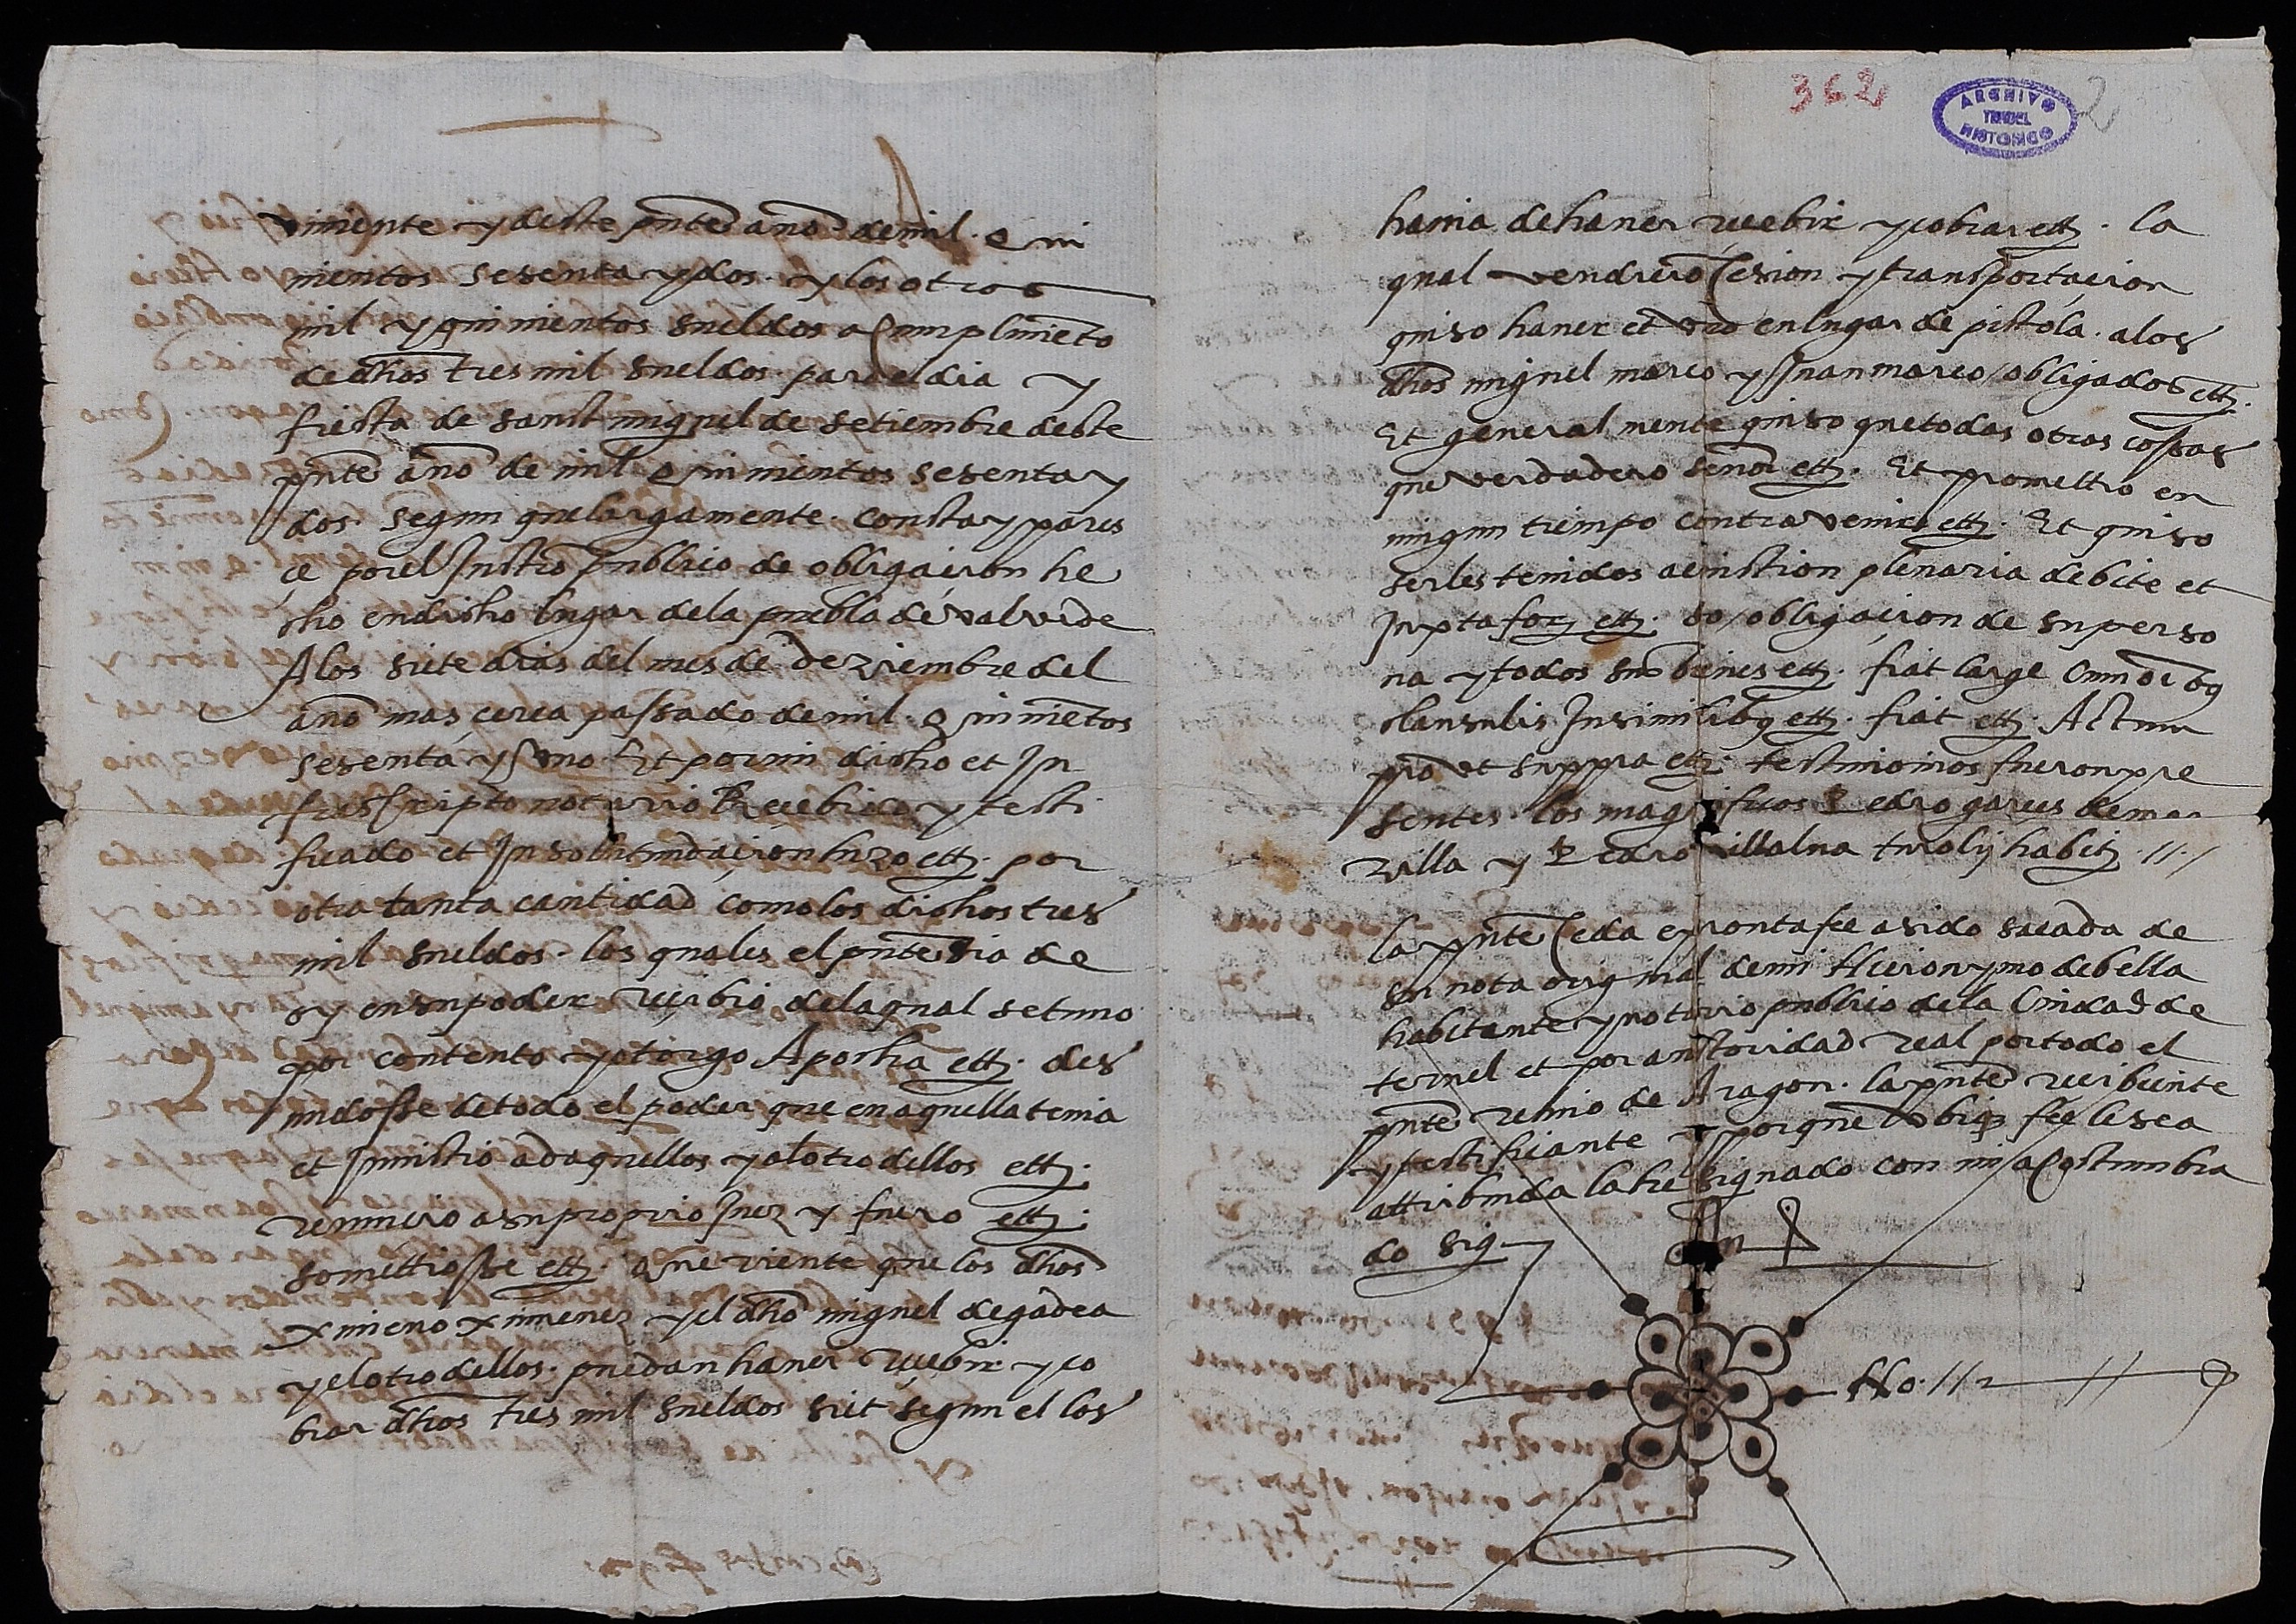 viniente y deste pnte año de mil. quini
nientos sesenta y dos. y los otros
mil y quinientos sueldos a Cumplimiēto
de dhos tres mil sueldos. para el dia y
fiesta de sanct miguel de setiembre deste
pnte año de mil quinientos sesenta y
dos. segun que largamente. consta y pares
çe por el Instro publico de obligaçion he
cho en dicho lugar dela puebla de valverde
A los siete dias del mes de deziembre del
año mas çerca passado de mil. quiniētos
sesenta y uno Et por mi dicho et In
frascripto notario Recebido y testi
ficado et In solutūdaçion hizo ett. por
otra tanta cantidad como los dichos tres
mil sueldos. los quales el pnte dia de
oy en su poder reçibio dela qual se tuuo
por contento y otorgo Apocha ett. des
nudosse de todo el poder que en aquella tenia
et Inuistio ad aquellos y al otro dellos ett.
renuncio a su proprio Juez y fuero ett.
somettiosse ett. Queriente que los dhos
ximeno ximenez y el dho miguel de gadea
y el otro dellos. puedan hauer reçebir y co
brar dhos tres mil sueldos siet segun el los
362
ARCHIVO
TERUEL
HISTORICO
2
hauia de hauer recebir y cobrar ett. la
qual vendicio Cesion y transportaçion
quiso hauer et en lugar de pistola. a los
dhos miguel marco y Juan marco obligados ett.
Et general mente quiso que todas otras cossas
que verdadero señor ett. Et promettio en
ningun tiempo contravenir ett. Et quiso
serles tenidos a euiction plenaria debite et
Juxta for ett. so obligaçion de su perso
na y todos sus bienes ett. fiat large Cum oibq
clausulis In similibq ett. fiat ett. Actum
pro ut suppra ett. testimonios fueron pre
sentes los magnificos Pedro garces de mar
zilla y Pedro villalua turolij habit. //./
la pnte Ceda en pronta fee a sido sacada de
su nota original de mi Hieronymo debella
habitante y notario publico dela Ciudad de
teruel et por auctoridad real por todo el
pnte reino de Aragon. la pnte recibiente
y testificante y porque Vbiq fee le sea
attribuida la he signado con mi aCostumbra
do sig-
no. //